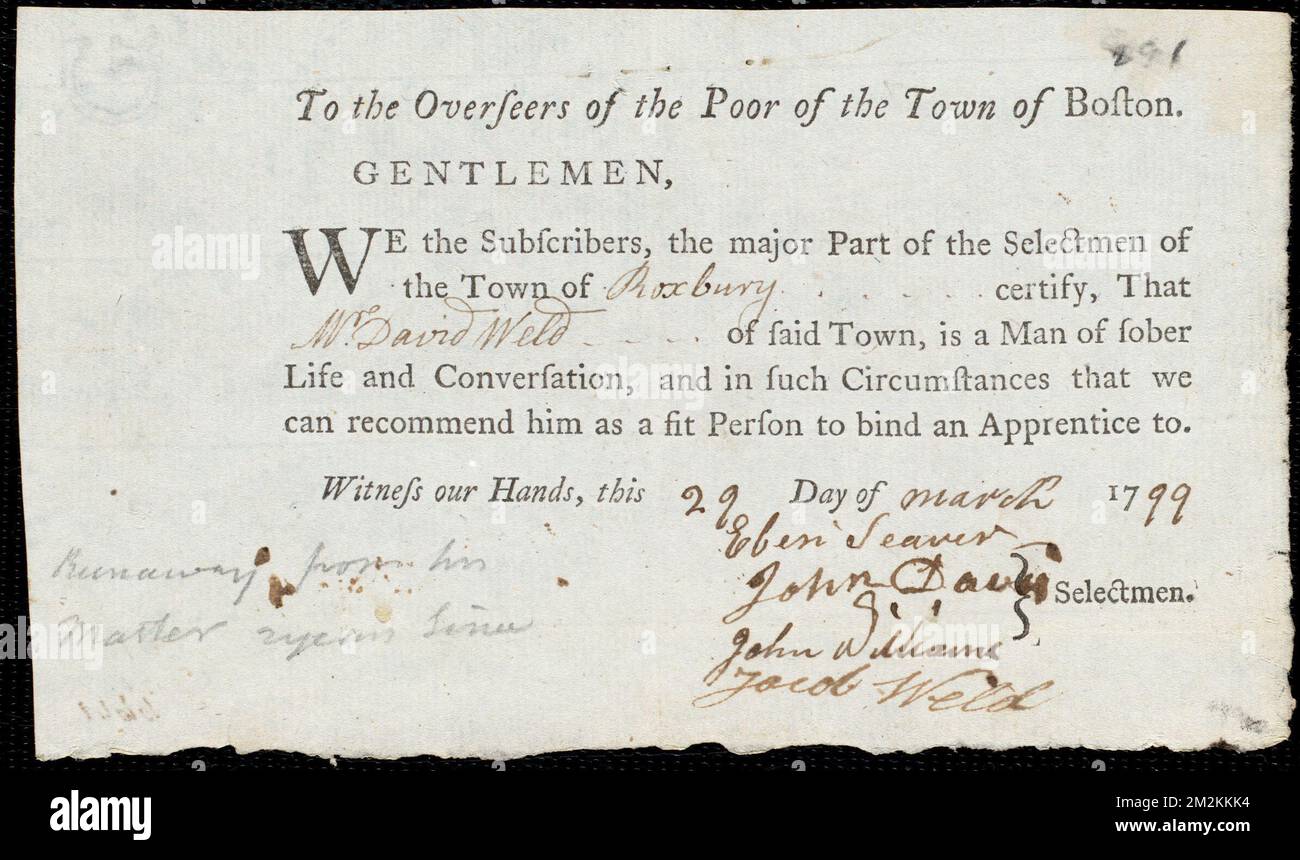 291
To the Overſeers of the Poor of the Town of Boſton.
GENTLEMEN,
WE the Subſcribers, the major Part of the Selectmen of
the Town of Roxbury . . . . . certify, That
Mr. David Weld - - - - of ſaid Town, is a Man of ſober
Life and Converſation, and in ſuch Circumſtances that we
can recommend him as a fit Perſon to bind an Apprentice to.
Witneſs our Hands, this 29 Day of march 1799
Eben Seaver
John Davis
Selectmen.
John Williams
Jacob Weld
Runaway from his
Master 2 years Since
alamy
Image ID: 2M2KKK4
www.alamy.com